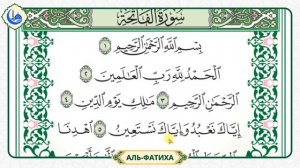 سُورَةُ الْفَاتِحَةِ
بِسْمِ اللَّهِ الرَّحْمَٰنِ الرَّحِيمِ ١
الْحَمْدُ لِلَّهِ رَبِّ الْعَالَمِينَ ٢
الرَّحْمَٰنِ الرَّحِيمِ ٣ مَالِكِ يَوْمِ الدِّينِ ٤
إِيَّاكَ نَعْبُدُ وَإِيَّاكَ نَسْتَعِينُ ٥ اهْدِنَا
АЛЬ-ФАТИХА